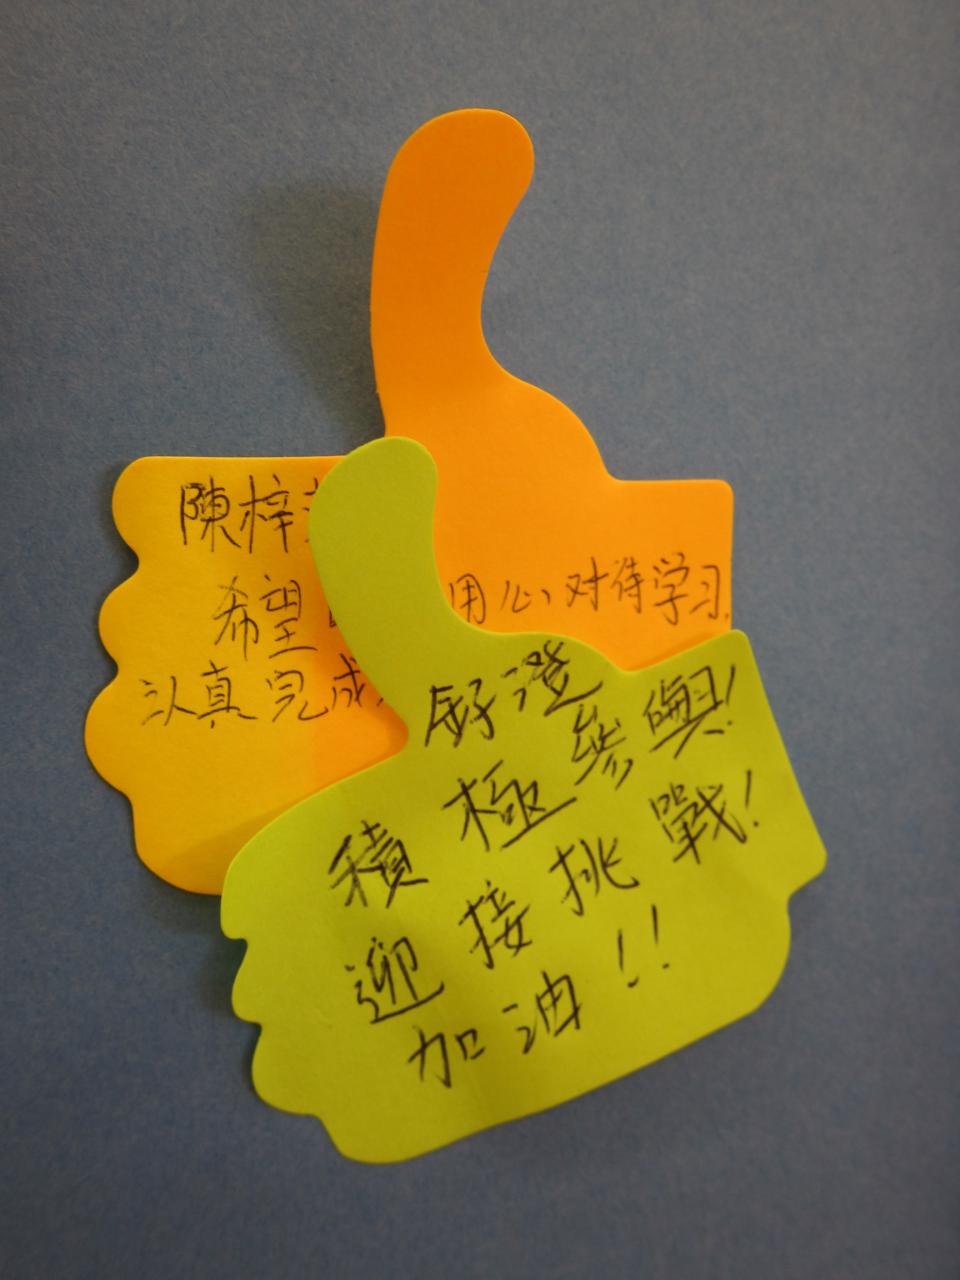 陳梓
希望 用心对待学习.
认真完成
舒澄
積極參與!
迎接挑戰!
加油!!